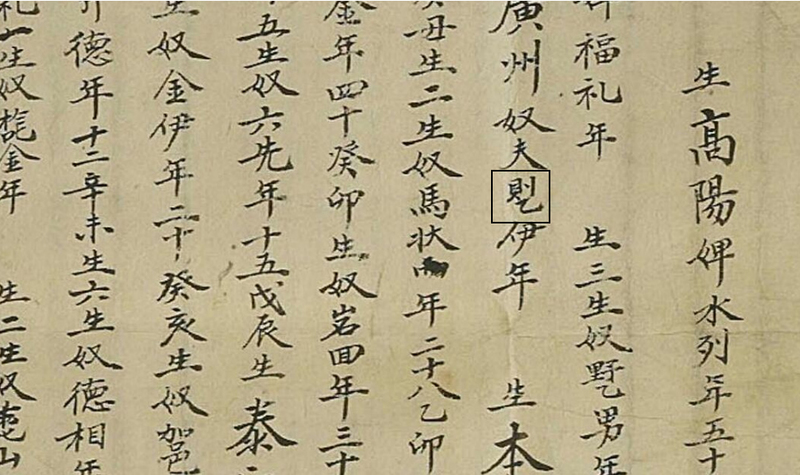 生 髙陽婢水列年五十
福礼年 生三生奴男年
廣州奴夫伊年 生 本
丑生二生奴馬状年二十八乙卯
金年四十癸卯生奴岩回年三十
五生奴六先年十五戊辰生 泰
生奴金伊年二十癸亥生奴
德年十二辛未生六生奴德相年
礼一生奴金年 生二生奴山